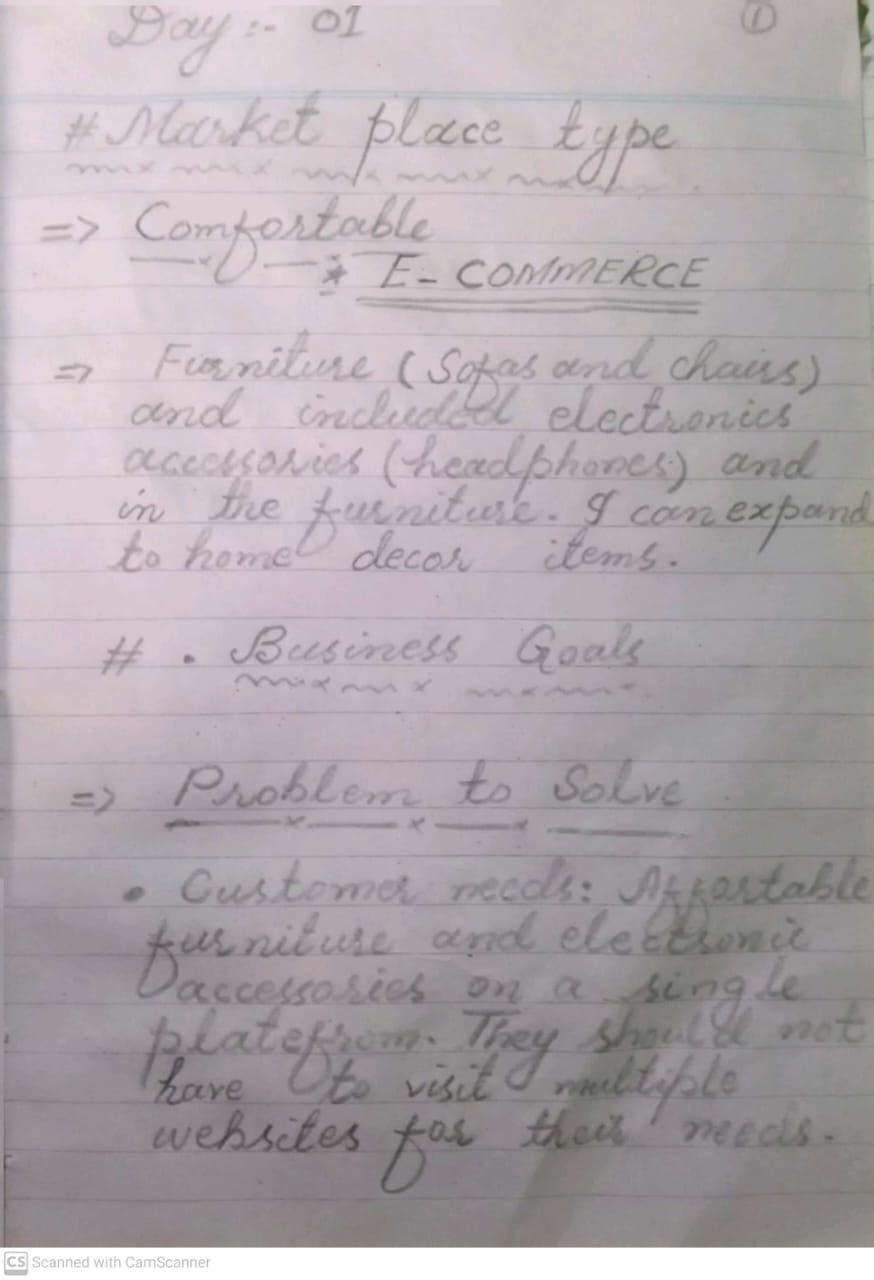 Day :- 01
1
# Market place type
=> Comfortable
* E-COMMERCE
=> Furniture (Sofas and chairs)
and included electronics
accessories (headphones) and
in the furniture. I can expand
to home decor items.
# . Business Goals
=> Problem to Solve
• Customer needs: Affortable
furniture and electronic
accessories on a single
platefrom. They should not
have to visit multiple
websites for their needs.
CS Scanned with CamScanner